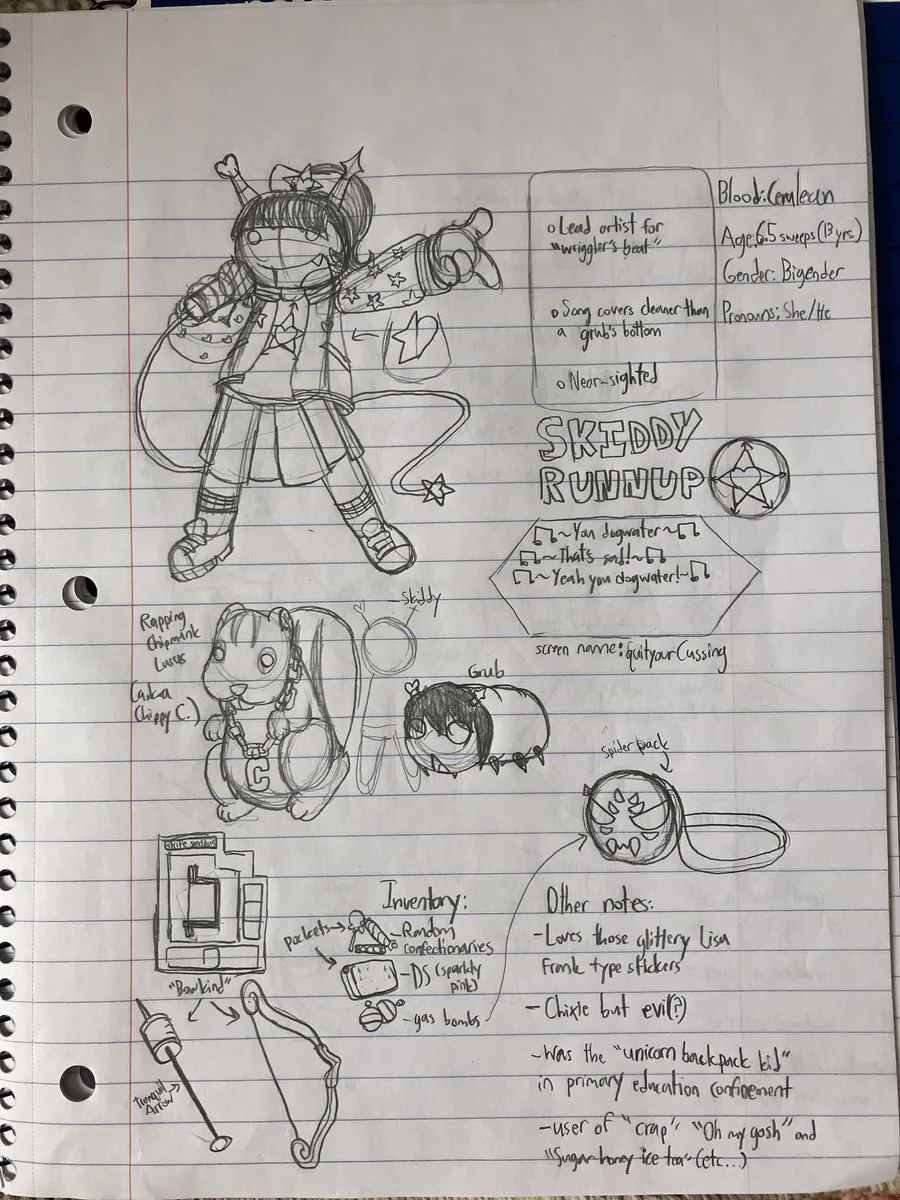 o Lead artist for
"wriggler's beat"
o Song covers cleaner than
a grub's bottom
o Near-sighted
Blood: Cerulean
Age: 6.5 sweeps (13 yrs)
Gender: Bigender
Pronouns: She/He
SKIDDY
RUNNUP
~You dogwater~
~That's sad!~
~Yeah you dogwater!~
screen name: quityourCussing
Rapping
Chipmunk
Lusus
(a.k.a
Chippy C.)
Skiddy
C
Grub
spider pack
strife specibus
"Bowkind"
Tranquil
Arrow
Inventory:
pockets
-Random
confectionaries
-DS (sparkly
pink)
-gas bombs
Other notes:
-Loves those glittery Lisa
Frank type stickers
-Chixie but evil(?)
-Was the "unicorn backpack kid"
in primary education confinement
-user of "crap" "Oh my gosh" and
"Sugar honey ice tea" (etc...)